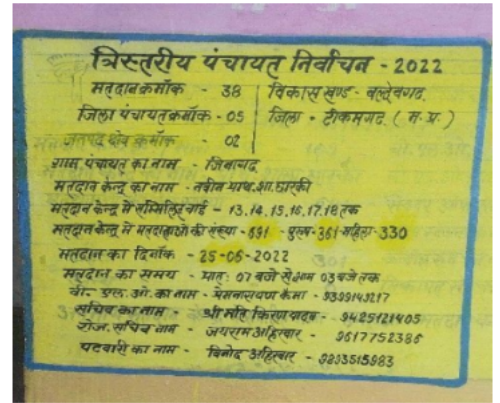 त्रिस्तरीय पंचायत निर्वाचन - 2022
मतदान क्रमाँक - 38 विकास खण्ड - बल्देवगढ़
जिला पंचायत क्रमाँक - 05 जिला - टीकमगढ़ (म.प्र.)
जनपद क्षेत्र क्रमाँक 02
ग्राम पंचायत का नाम - जिनागढ़
मतदान केन्द्र का नाम - नवीन माध. शा.
मतदान केन्द्र में सम्मिलित वार्ड - 13,14,15,16,17,18 तक
मतदान केन्द्र में मतदाताओं की संख्या - 691 पुरुष - 361 महिला - 330
मतदान का दिनाँक - 25-06-2022
मतदान का समय - प्रातः 07 बजे से शाम 03 बजे तक
बी. एल. ओ. का नाम - प्रेमनारायण - 9399149217
सचिव का नाम - श्री मति किरण यादव - 9425121405
रोज. सचिव नाम - जयराम अहिरवार - 9617752386
पटवारी का नाम - विनोद अहिरवार - 9893515983